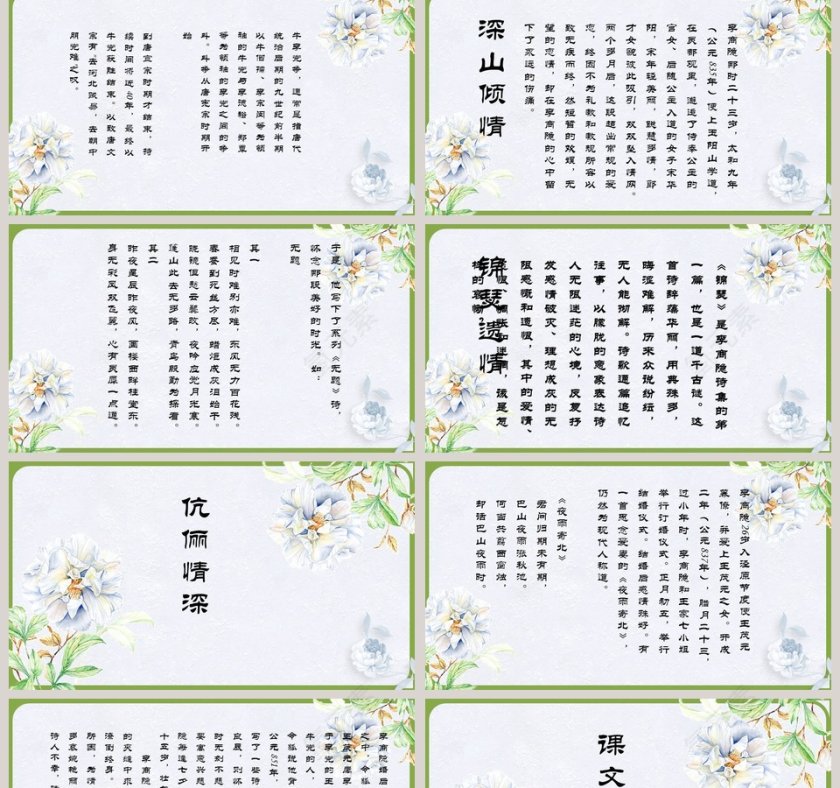 牛李党争，通常是指唐代
统治后期的九世纪前半期
以牛僧孺、李宗闵等为领
袖的牛党与李德裕、郑覃
等为领袖的李党之间的争
斗。斗争从唐宪宗时期开
始
到唐宣宗时期才结束，持
续时间将近40年，最终以
牛党获胜结束。以致唐文
宗有“去河北贼易，去朝中
朋党难”之叹。
深山倾情
李商隐那时二十三岁，太和九年
（公元835年）便上玉阳山学道，
在灵都观里，邂逅了侍奉公主的
宫女、后随公主入道的女子宋华
阳，宋年轻美丽，聪慧多情，郎
才女貌彼此吸引，双双坠入情网。
两个多月后，这段超出常规的爱
恋，终因不为礼教和教规所容以
致无疾而终，然短暂的欢娱，无
望的恋情，却在李商隐的心中留
下了永远的伤痛。
于是，他写下了系列《无题》诗，
怀念那段美好的时光。如：
无题
其一
相见时难别亦难，东风无力百花残。
春蚕到死丝方尽，蜡炬成灰泪始干。
晓镜但愁云鬓改，夜吟应觉月光寒。
蓬山此去无多路，青鸟殷勤为探看。
其二
昨夜星辰昨夜风，画楼西畔桂堂东。
身无彩凤双飞翼，心有灵犀一点通。
锦瑟遗情
《锦瑟》是李商隐诗集的第
一篇，也是一道千古谜。这
首诗辞藻华丽，用典殊多，
晦涩难解，历来众说纷纭，
无人能彻解。诗歌通篇追忆
往事，以朦胧的意象表达诗
人无限迷茫的心境，反复抒
发感情破灭、理想成灰的无
限感慨和遗恨，其中的爱情、
伉俪情深
李商隐26岁入泾原节度使王茂元
幕僚，并爱上王茂元之女。开成
二年（公元837年），腊月二十三，
过小年时，李商隐和王家七小姐
举行订婚仪式。正月初五，举行
结婚仪式。结婚后感情殊好。有
一首思念爱妻的《夜雨寄北》，
仍然为现代人称道。
《夜雨寄北》
君问归期未有期，
巴山夜雨涨秋池。
何当共剪西窗烛，
却话巴山夜雨时。
李商隐婚后
之中，令狐
王茂元属李
于李党的王
牛党的人，
令狐说他背
公元851年，
写了一些诗
李商隐
诗人不幸，
课文